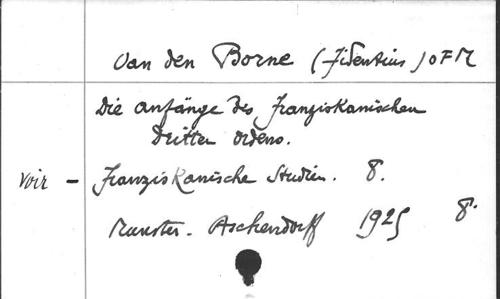 Van den Borne (Fidentius) OFM
Die Anfänge des Franziskanischen
Dritten Ordens.
Voir - Franziskanische Studien. 8.
Munster. Aschendorff 1925 8.